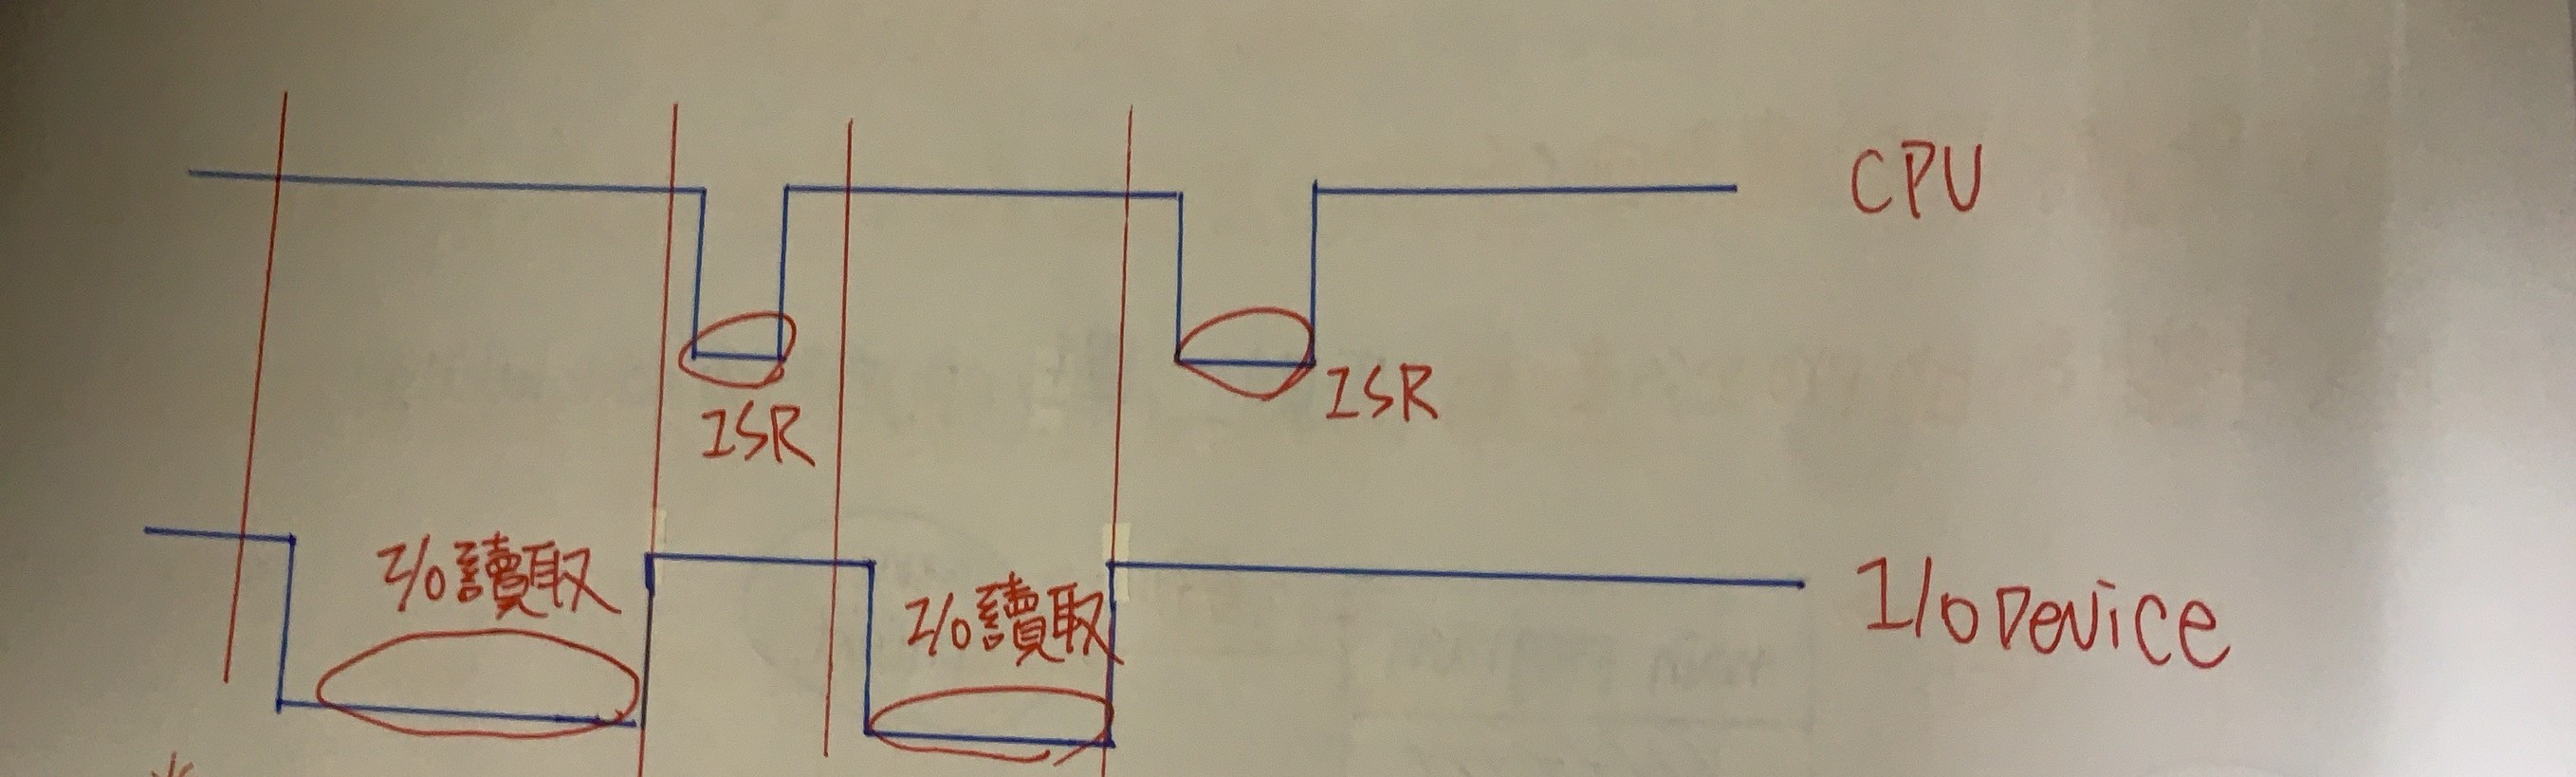 CPU
ISR
ISR
I/O讀取
I/O讀取
I/O Device
*